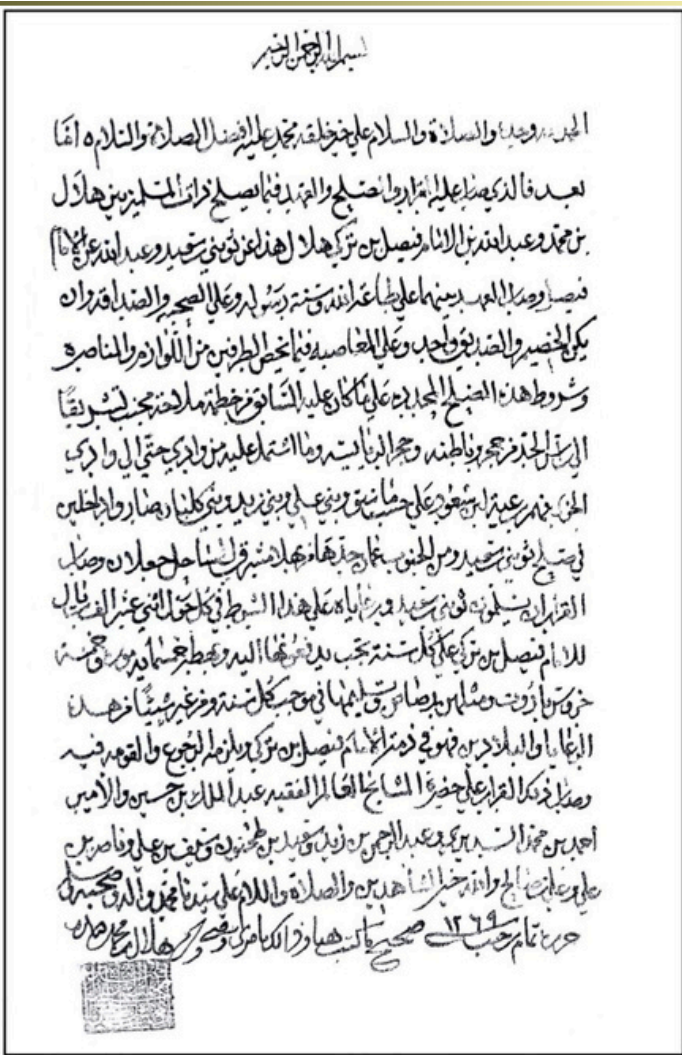 بسم الله الرحمن الرحيم
الحمد لله وحده والصلاة والسلام على خير خلقه محمد عليه افضل الصلاة والسلام ه اما
بعد فالذي صار عليه القرار والصلح والعهد فيما يصلح ذات المسلمين بين هلال
بن محمد وعبد الله بن الامام فيصل بن تركي هلال هذا عن ثويني بن سعيد وعبد الله عن الامام
فيصل وصار العهد بينهما على طاعة الله وسنة رسوله وعلى الصحبه والصداقه وان
يكن الخصيم والصديق واحد وعلى فيما يخص الطرفين من اللوازم والمناصره
وشروط هذا الصلح المجدده على ما كان عليه السابق فخطمة ملاحه
الى راس الحد فحجر وباطنه وحجر وما اشتمل عليه من وادي حتى الى وادي
رعية لبن سعود على حسب ما سبق وبني علي وبني زيد وبني كلبان صاروا داخلين
في صلح ثويني بن سعيد ومن الجنوب عمان حدها الساحل جعلان وصار
القرار ان يسلمون ثويني بن سعيد ورعاياه على هذا الشرط في كل حول اثني عشر الف ريال
للامام فيصل بن تركي على كل سنة يجب يدفعونها اليه وخمسة
باروت ومثلهن رصاص وتسليمها في موجب كل سنة ومن غير شيئا من هذه
الرعايا والبلادين فهو في ذمة الامام فيصل بن تركي ويلزمه الرجوع والقومه فيه
وصار ذلك القرار على حضرة المشايخ العالم الفقيه عبد الملك بن حسين والامير
احمد بن محمد السديري وعبد الرحمن بن زيد وسعيد بن طحنون وسيف بن علي وناصر بن
علي وعلي بن صالح والله خير الشاهدين والصلاة والسلام على سيدنا محمد واله وصحبه وسلم
حرر تمام رجب ١٢٦٩ صحيح ما كتب هنا وذلك بامري هلال بن محمد بيده